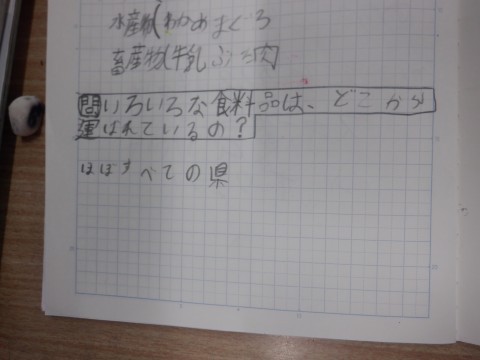 水産物(わかめまぐろ
畜産物(牛乳ぶた肉
問いろいろな食料品は、どこから
運ばれているの?
ほぼすべての県